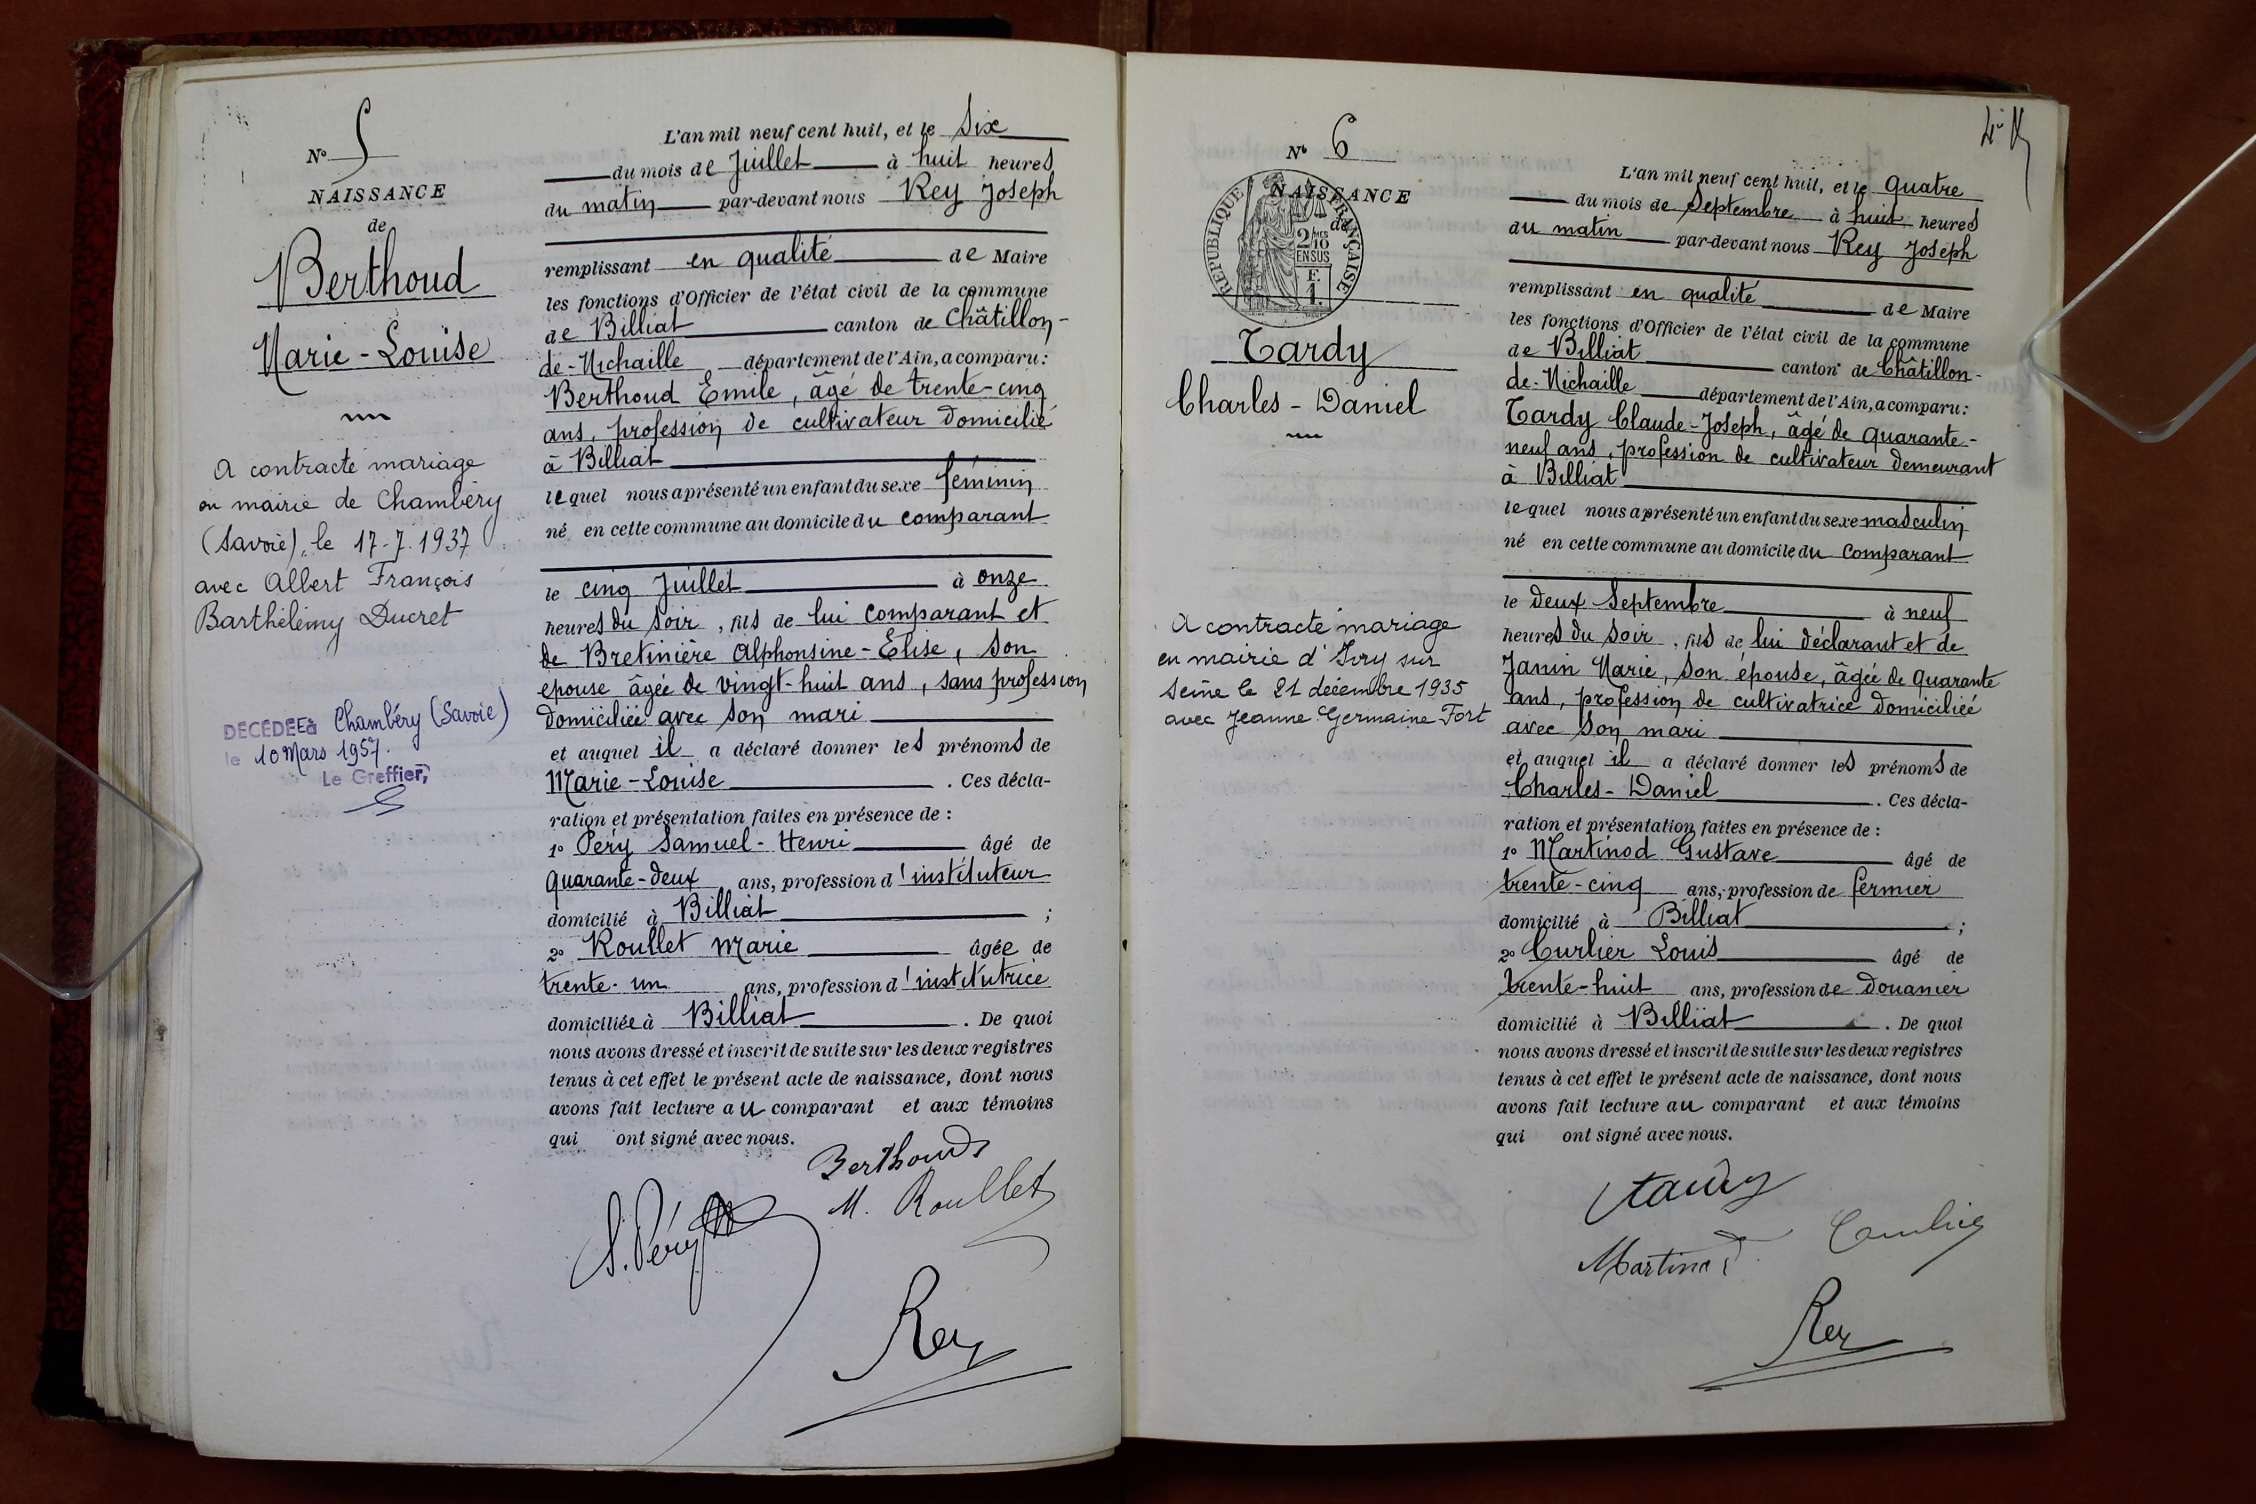 N° 5
NAISSANCE
de
Berthoud
Marie-Louise
A contracté mariage
en mairie de Chambéry
(Savoie), le 17-7-1937
avec Albert François
Barthélemy Ducret
DECEDEE à Chambéry (Savoie)
le 10 Mars 1957.
Le Greffier,
L'an mil neuf cent huit, et le Six
du mois de Juillet à huit heures
du matin par-devant nous Rey Joseph
remplissant en qualité de Maire
les fonctions d'Officier de l'état civil de la commune
de Billiat canton de Châtillon-
de-Michaille département de l'Ain, a comparu:
Berthoud Emile, âgé de trente-cinq
ans, profession de cultivateur domicilié
à Billiat
lequel nous a présenté un enfant du sexe féminin
né en cette commune au domicile du comparant
le cinq Juillet à onze
heures du soir, fils de lui comparant et
de Bretinière Alphonsine-Elise, son
epouse âgée de vingt-huit ans, sans profession
domiciliée avec son mari
et auquel il a déclaré donner les prénoms de
Marie-Louise. Ces décla-
ration et présentation faites en présence de :
1° Péry Samuel-Henri âgé de
quarante-deux ans, profession d'instituteur
domicilié à Billiat ;
2° Roullet Marie âgée de
trente-un ans, profession d'institutrice
domiciliée à Billiat. De quoi
nous avons dressé et inscrit de suite sur les deux registres
tenus à cet effet le présent acte de naissance, dont nous
avons fait lecture au comparant et aux témoins
qui ont signé avec nous.
Berthoud
M. Roullet
S. Péry
Rey
N° 6
NAISSANCE
de
REPUBLIQUE FRANÇAISE
2/10 MES
EN SUS
F.
1.
Tardy
Charles-Daniel
A contracté mariage
en mairie d'Ivry sur
Seine le 21 décembre 1935
avec Jeanne Germaine Fort
L'an mil neuf cent huit, et le quatre
du mois de Septembre à huit heures
du matin par-devant nous Rey Joseph
remplissant en qualité de Maire
les fonctions d'Officier de l'état civil de la commune
de Billiat canton de Châtillon-
de-Michaille département de l'Ain, a comparu:
Tardy Claude-Joseph, âgé de quarante-
neuf ans, profession de cultivateur demeurant
à Billiat
lequel nous a présenté un enfant du sexe masculin
né en cette commune au domicile du comparant
le deux Septembre à neuf
heures du soir, fils de lui déclarant et de
Janin Marie, son épouse, âgée de quarante
ans, profession de cultivatrice domiciliée
avec son mari
et auquel il a déclaré donner les prénoms de
Charles-Daniel. Ces décla-
ration et présentation faites en présence de :
1° Martinod Gustave âgé de
trente-cinq ans, profession de fermier
domicilié à Billiat ;
2° Curlier Louis âgé de
trente-huit ans, profession de douanier
domicilié à Billiat. De quoi
nous avons dressé et inscrit de suite sur les deux registres
tenus à cet effet le présent acte de naissance, dont nous
avons fait lecture au comparant et aux témoins
qui ont signé avec nous.
Tardy
Martinod
Rey